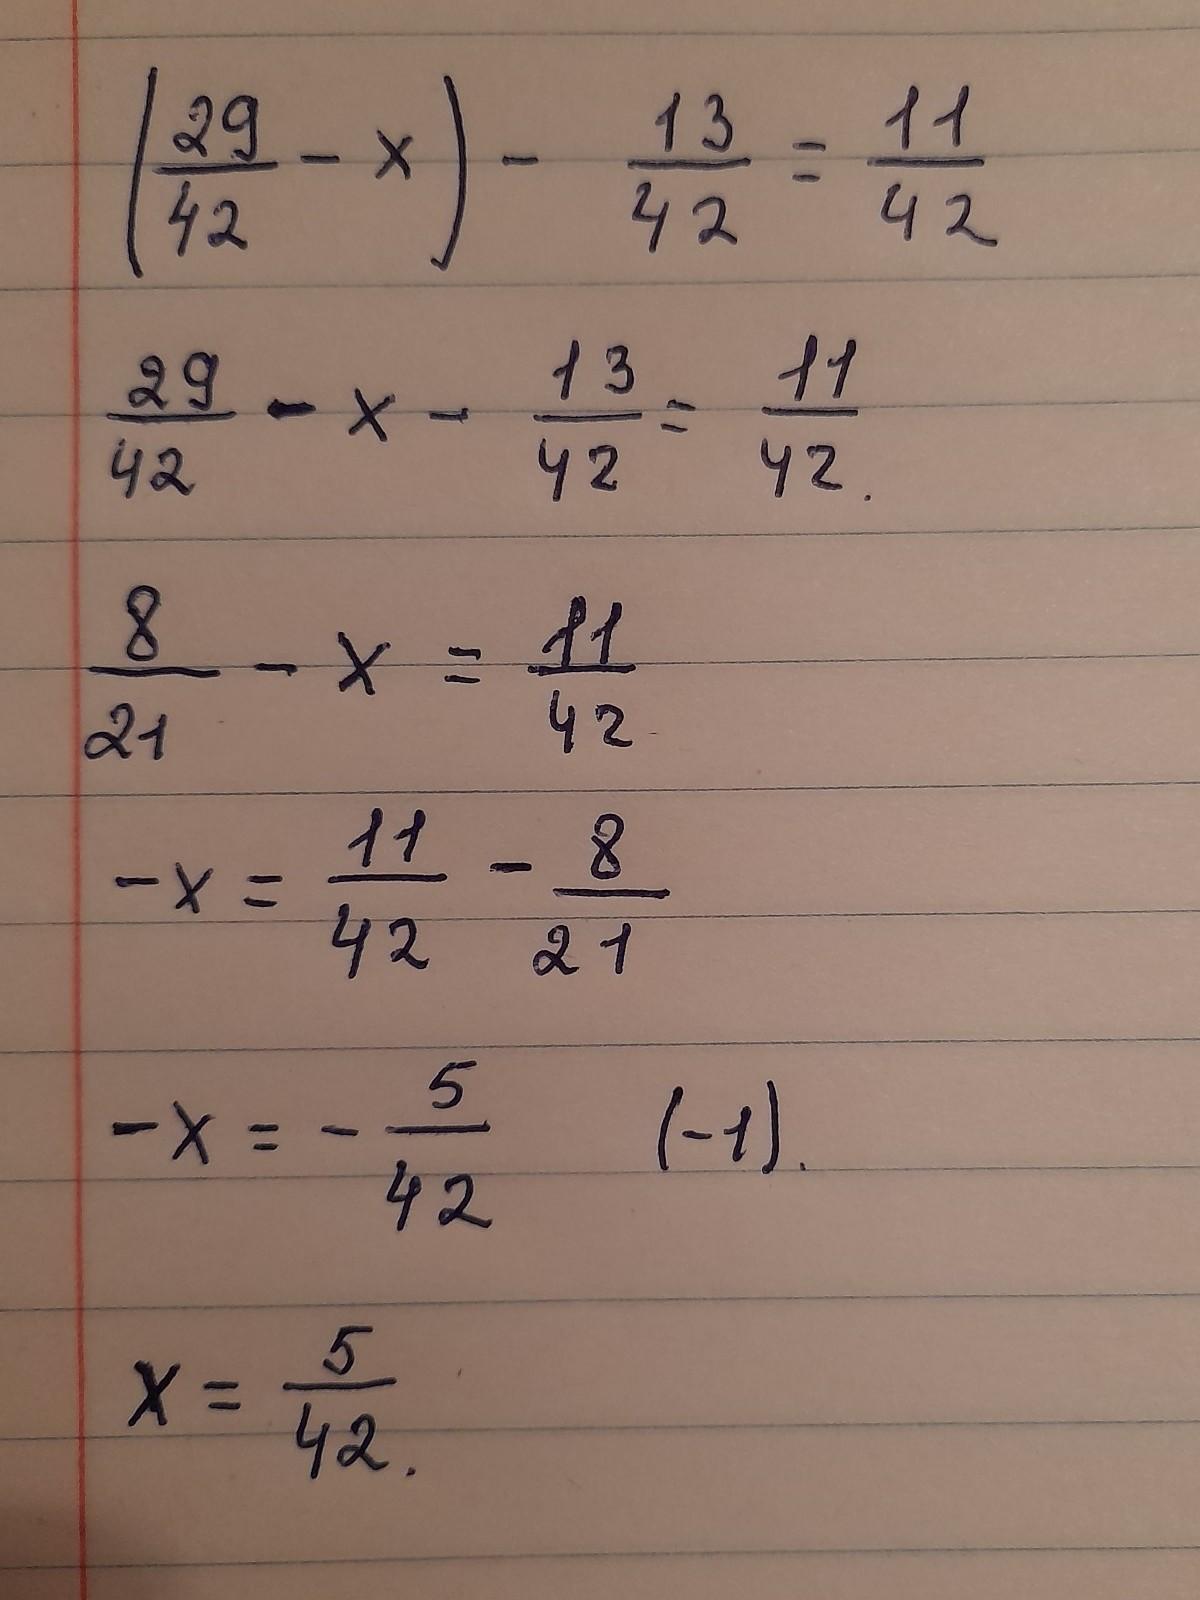 (29/42 - x) - 13/42 = 11/42
29/42 - x - 13/42 = 11/42.
8/21 - x = 11/42
-x = 11/42 - 8/21
-x = - 5/42 (-1).
x = 5/42.